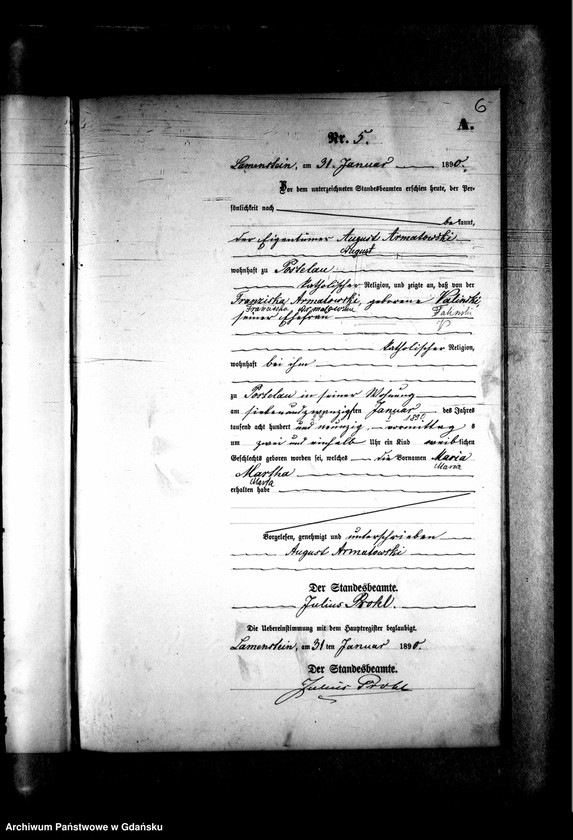 6
A.
Nr. 5.
Lamenstein, am 31. Januar 1890.
Vor dem unterzeichneten Standesbeamten erschien heute, der Per-
sönlichkeit nach
bekannt,
der Eigentümer August Armatowski
August
wohnhaft zu Postelau
katholischer Religion, und zeigte an, daß von der
Franziska Armatowski, geborene Valinski,
Franciszka Armatowska
seiner Ehefrau
katholischer Religion,
wohnhaft bei ihm
zu Postelau in seiner Wohnung
am siebenundzwanzigsten Januar des Jahres
1890
tausend acht hundert und neunzig, vormittag s
um zwei und einhalb Uhr ein Kind weiblichen
Geschlechts geboren worden sei, welches die Vornamen Maria
Maria
Martha
Marta
erhalten habe
Vorgelesen, genehmigt und unterschrieben
August Armatowski
Der Standesbeamte.
Julius Prohl.
Die Uebereinstimmung mit dem Hauptregister beglaubigt.
Lamenstein, am 31 ten Januar 1890.
Der Standesbeamte.
Julius Prohl
Archiwum Państwowe w Gdańsku